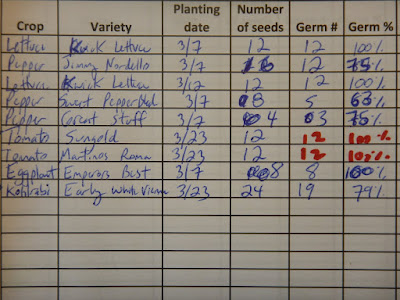 Planting Number
Crop Variety date of seeds Germ # Germ %
Lettuce Kwik Lettuce 3/7 12 12 100%
Pepper Jimmy Nardello 3/7 16 12 75%
Lettuce Kwik Lettuce 3/12 12 12 100%
Pepper Sweet Pepper 3/7 8 5 63%
Pepper 3/7 4 3 75%
Tomato Sungold 3/23 12 12 100%
Tomato Martinos Roma 3/23 12 12 100%
Eggplant Emperors Best 3/7 8 8 100%
Kohlrabi Early White Vienna 3/23 24 19 79%